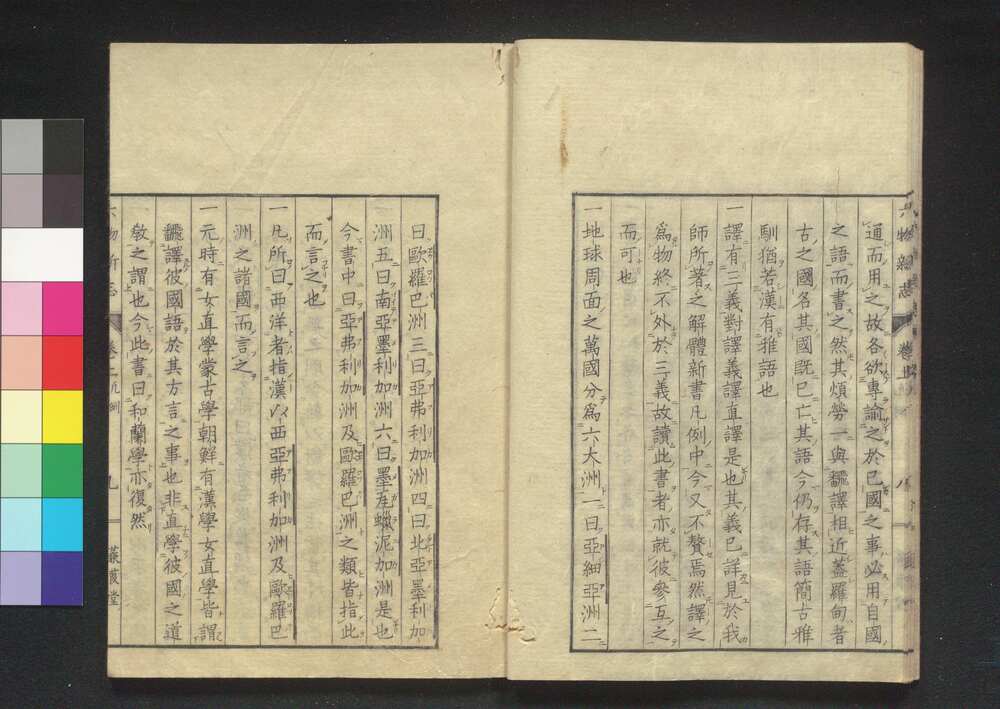 通而用之故各欲專諭之於已國之事必用自國
之語而書之然其煩勞一與飜譯相近蓋羅甸者
古之國名其國既已亡其語今仍存其語簡古雅
馴猶若漢有雅語也
一譯有三義對譯義譯直譯是也其義已詳見於我
師所著之解體新書凡例中今又不贅焉然譯之
爲物終不外於三義故讀此書者亦就彼參互之
而可也
一地球周面之萬國分爲六大洲一曰亞細亞洲二
曰歐羅巴洲三曰亞弗利加洲四曰北亞墨利加
洲五曰南亞墨利加洲六曰墨瓦蠟泥加洲是也
今書中曰亞弗利加洲及歐羅巴洲之類皆指此
而言之也
一凡所曰西洋者指漢以西亞弗利加洲及歐羅巴
洲之諸國而言之
一元時有女直學蒙古學朝鮮有漢學女直學皆謂
飜譯彼國語於其方言之事也非直學彼國之道
敎之謂也今此書曰和蘭學亦復然